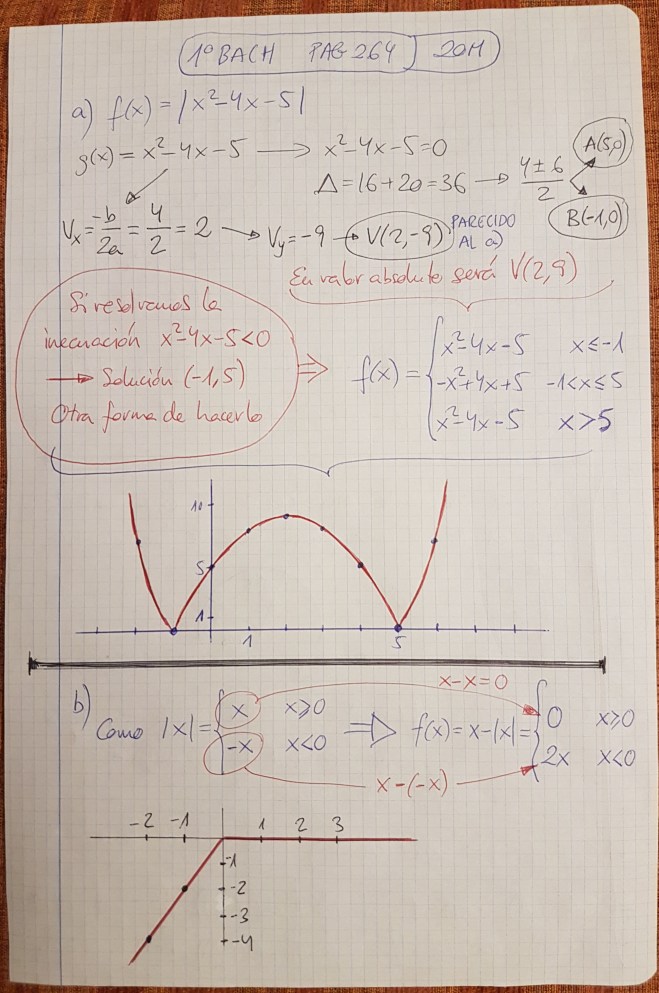 1º BACH PAG 264 20M
a) f(x) = |x²-4x-5|
g(x) = x²-4x-5 → x²-4x-5=0
Δ=16+20=36 → (4±6)/2
A(5,0)
B(-1,0)
Vx = -b/2a = 4/2 = 2 → Vy=-9 → V(2,-9) PARECIDO AL a)
En valor absoluto será V(2,9)
Si resolvemos la
inecuación x²-4x-5<0
→ Solución (-1,5)
Otra forma de hacerlo
⇒ f(x) = {
x²-4x-5 x≤-1
-x²+4x+5 -1<x≤5
x²-4x-5 x>5
10
5
1
1 5
b)
x-x=0
Como |x| = { x x≥0
-x x<0
⇒ f(x) = x-|x| = { 0 x≥0
2x x<0
x-(-x)
-2 -1 1 2 3
-1
-2
-3
-4